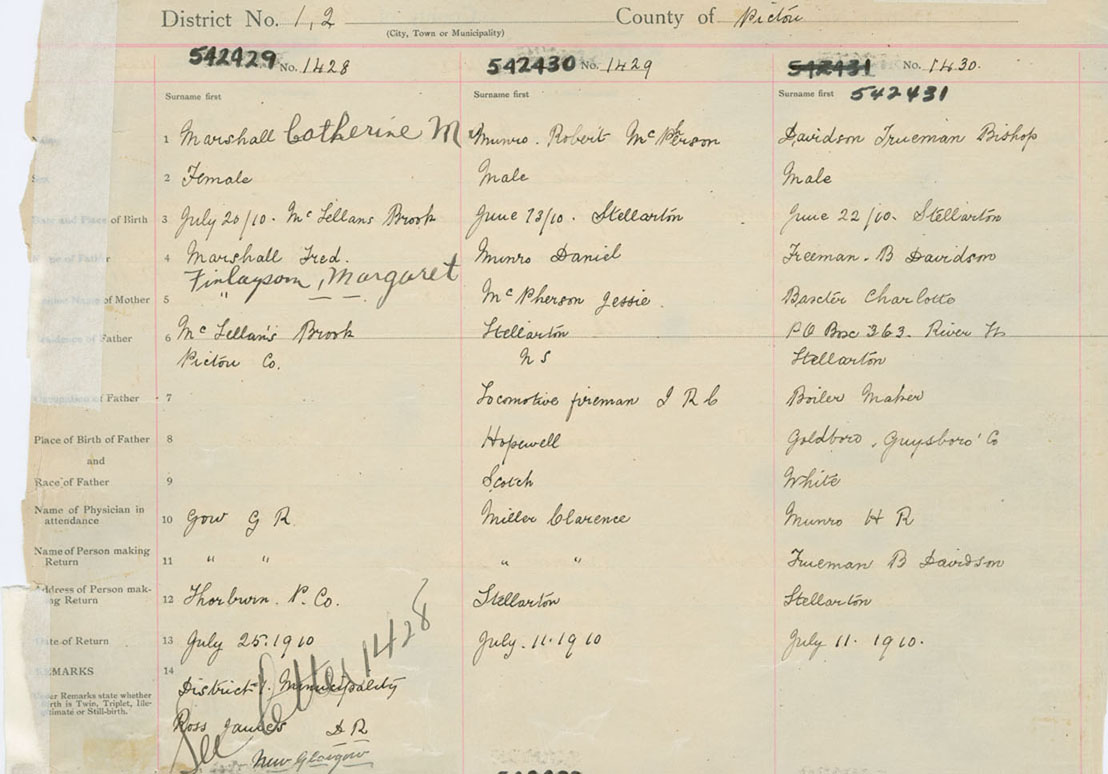 District No. 1,2 County of Pictou
(City, Town or Municipality)
542429 No. 1428 542430 No. 1429 542431 No. 1430.
Surname first Surname first Surname first 542431
1 Marshall Catherine M Munro. Robert McPherson Davidson Trueman Bishop
2 Female Male Male
Date and Place of Birth 3 July 20/10. McLellans Brook June 13/10. Stellarton June 22/10. Stellarton
Name of Father 4 Marshall Fred. Munro Daniel Freeman. B Davidson
Finlayson, Margaret
Name of Mother 5 " McPherson Jessie Baxter Charlotte
Residence of Father 6 McLellan's Brook Stellarton PO Box 363. River St
Pictou Co. N S Stellarton
Occupation of Father 7 Locomotive fireman I R C Boiler Maker
Place of Birth of Father 8 Hopewell Goldboro, Guysboro' Co
and
Race of Father 9 Scotch White
Name of Physician in
attendance 10 Gow G R Miller Clarence Munro H R
Name of Person making
Return 11 " " " " Trueman B Davidson
Address of Person mak-
ing Return 12 Thorburn. P. Co. Stellarton Stellarton
Date of Return 13 July 25. 1910 July. 11. 1910 July 11. 1910.
REMARKS 14 District 1. Municipality
Under Remarks state whether
birth is Twin, Triplet, Ille-
gitimate or Still-birth.
Ross James D R
See letter 1428
New Glasgow